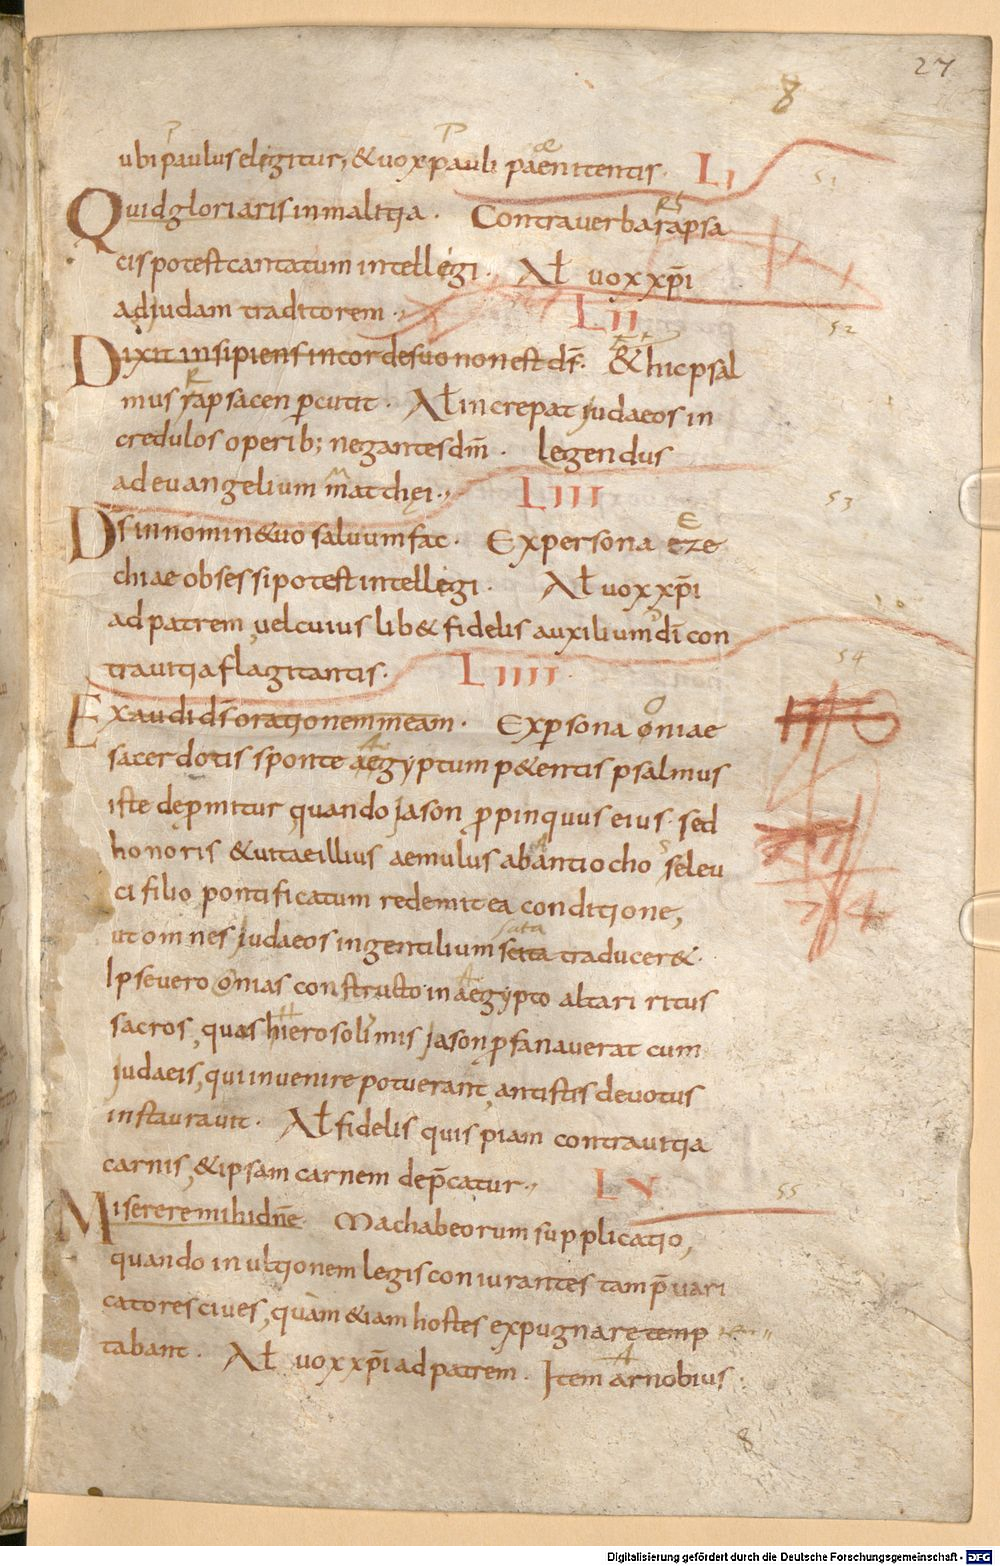 27
8
ubi paulus elegitur, & uox pauli paenitentis. LI
51
Quid gloriaris in malitia. Contra uerba rapsa
cis potest cantatum intellegi. Aƚ uox xp̄i
ad judam traditorem. LII
52
Dixit insipiens in corde suo non est ds̄. & hic psal
mus rapsacen percutit. Aƚ increpat judaeos in
credulos operib; negantes dm̄. legendus
ad euangelium matthęi. LIII
53
Ds̄ in nomin& uo saluum fac. Ex persona eze
chiae obsessi potest intellegi. Aƚ uox xp̄i
ad patrem, uel cuius lib& fidelis auxilium dī con
tra uitia flagitantis. LIIII
54
Exaudi ds̄ orationem meam. Ex persona oniae
sacerdotis sponte aegyptum p&entis psalmus
iste depmitur, quando jason propinquus eius sed
honoris & uitae illius aemulus ab antiocho seleu
ci filio pontificatum redemit ea conditione,
ut omnes judaeos in gentilium scita traducer&.
Ipse uero onias constructo in aegypto altari ritus
sacros, quos hierosolimis jason profanauerat cum
judaeis, qui inuenire potuerant, antistes deuotus
instaurauit. Aƚ fidelis quispiam contra uitia
carnis, & ipsam carnem dep̄catur. LV
55
Miserere mihi dn̄e. Machabeorum supplicatio,
quando in ultionem legis coniurantes tam p̄uari
catores ciues, quam &iam hostes expugnare temp
tabant. Aƚ uox xp̄i ad patrem. Item arnobius
8
Digitalisierung gefördert durch die Deutsche Forschungsgemeinschaft - DFG